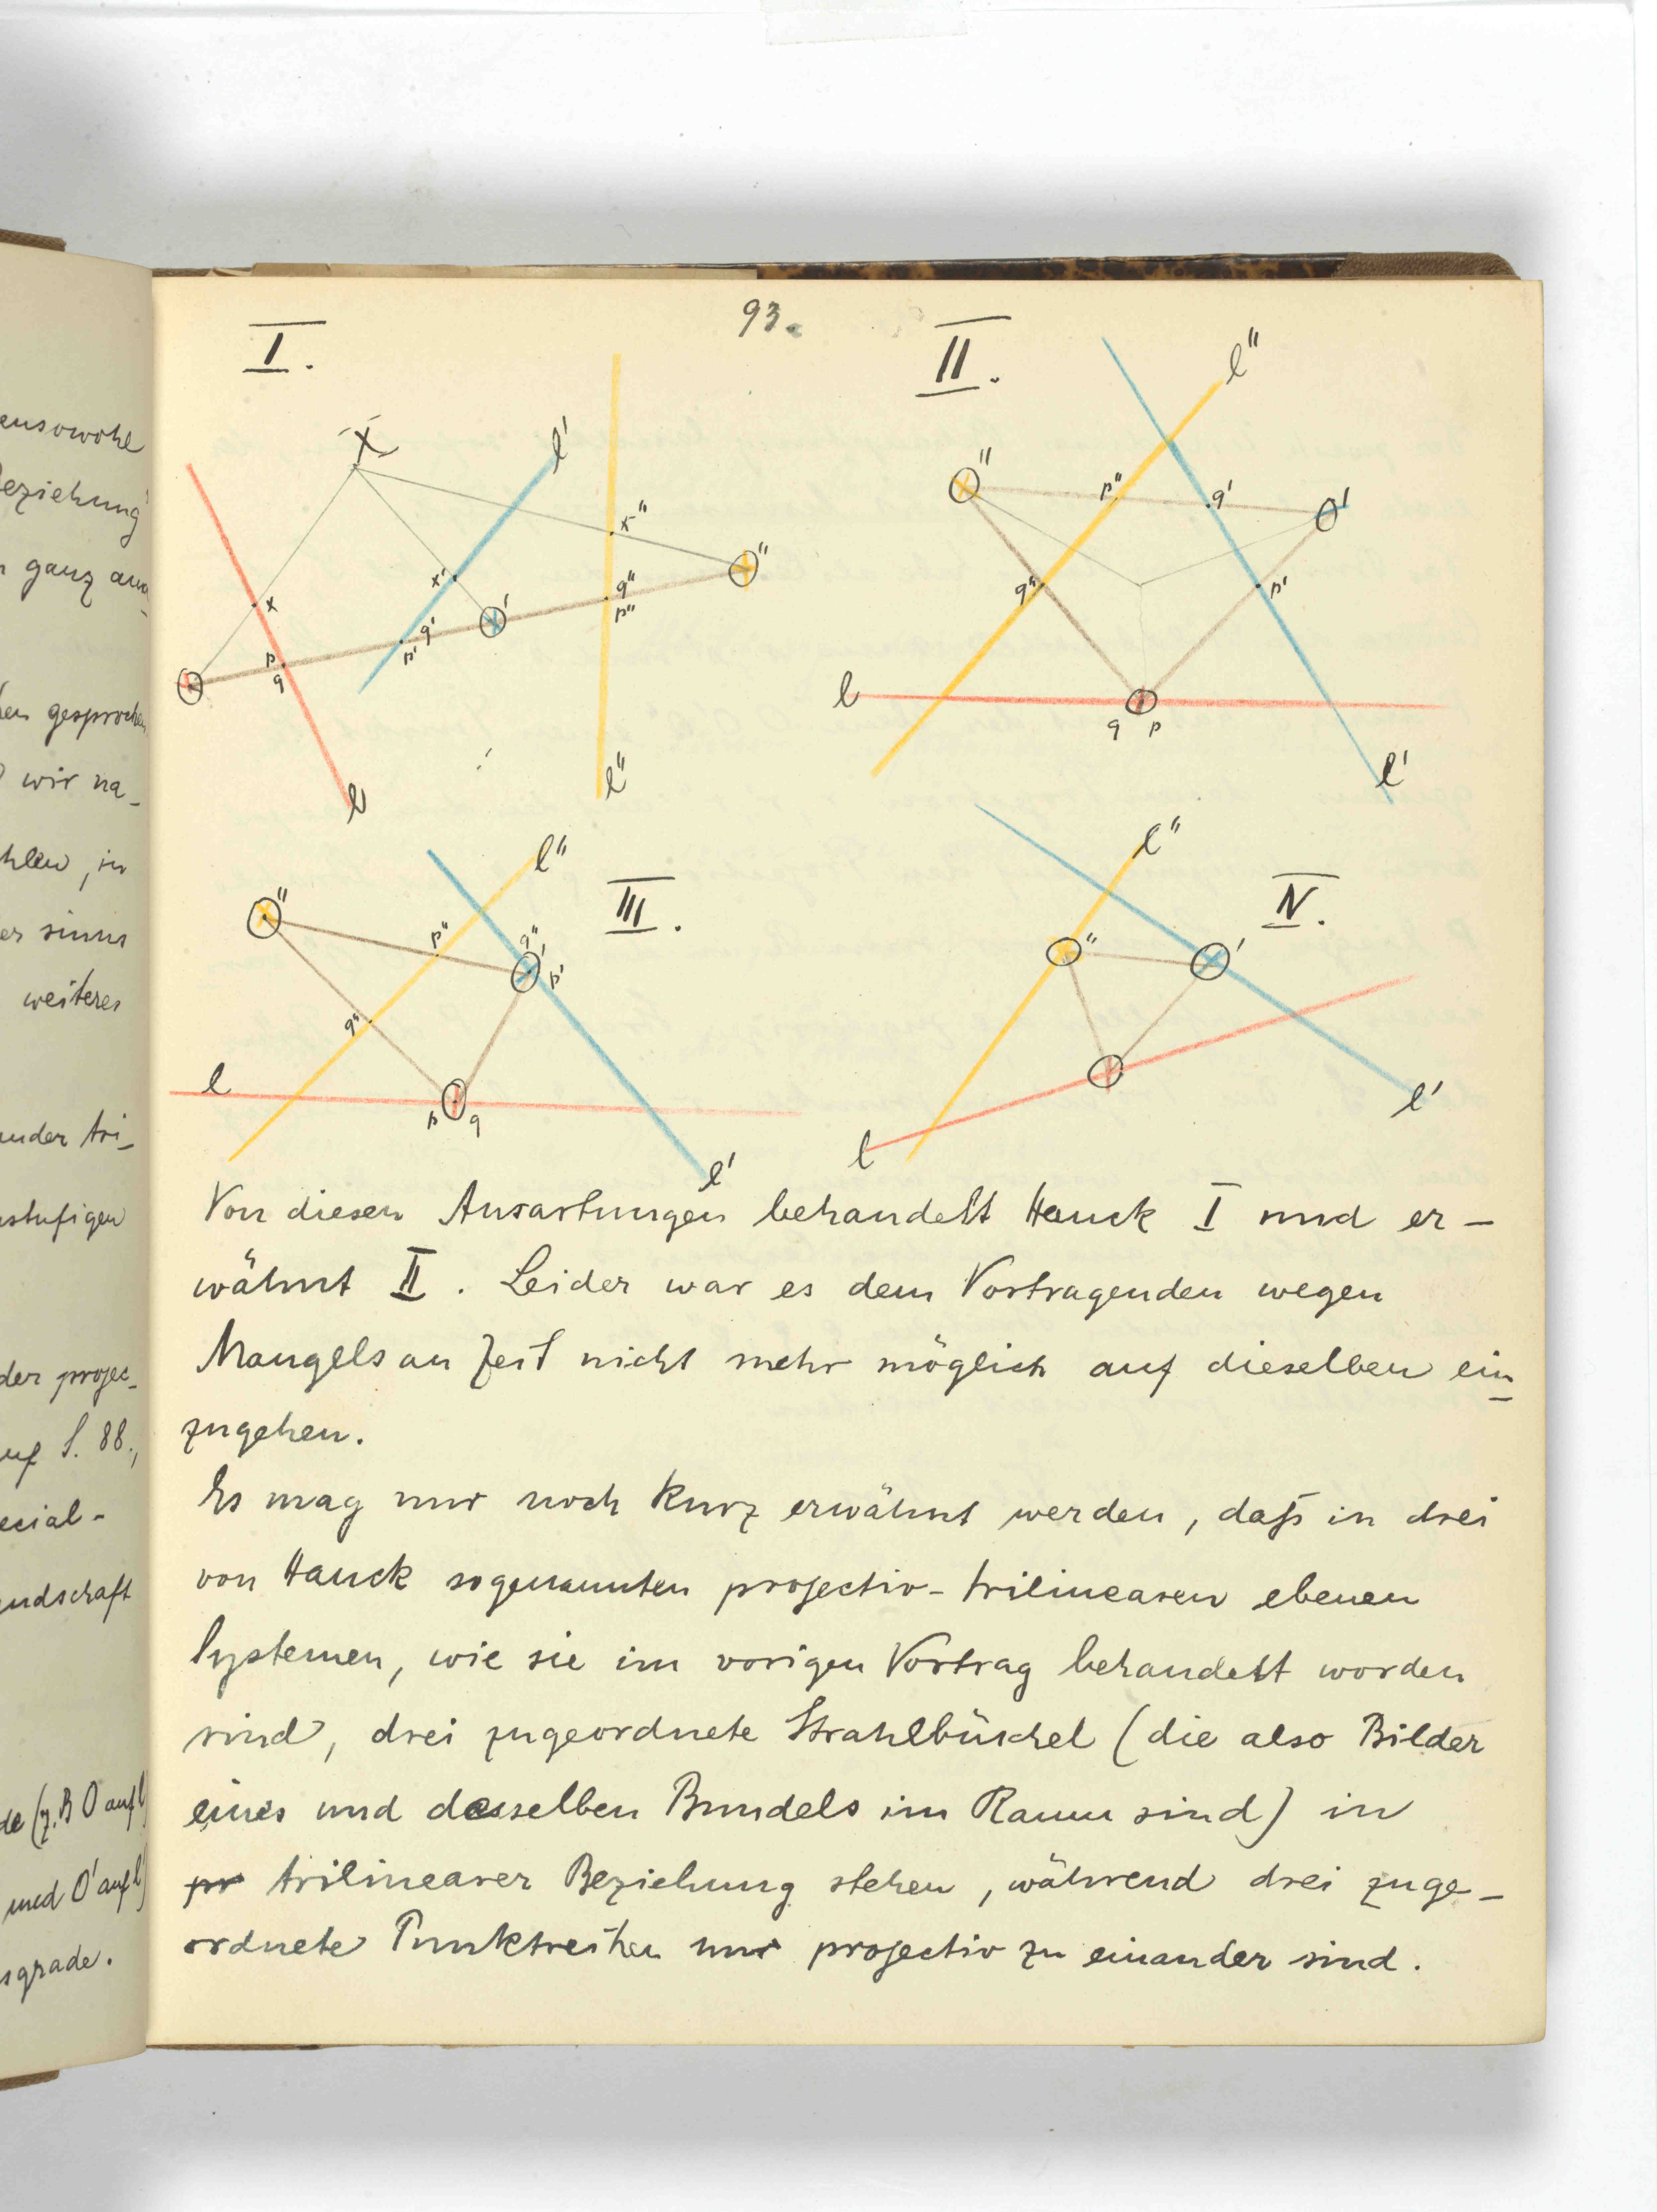 ensowohl
Beziehung
ganz
gesprochen
wir na-
in
sinn
weiteres
ander tri-
nstufigen
der projec-
auf S. 88.,
ecial-
endschaft
de (z.B O auf l)
und O' auf l')
sgrade.
93.
I.
X
l'
x''
O''
x'
x
q''
p''
O'
q'
p'
p
q
O
l
l''
II.
l''
O''
p''
q'
O'
q''
p'
l
O
q p
l'
III.
l''
O''
p''
q''
O'
p'
q''
l
O
p q
l'
IV.
l''
O''
O'
O
l'
l
Von diesen Ausartungen behandelt Hauck I und er-
wähnt II. Leider war es dem Vortragenden wegen
Mangels an Zeit nicht mehr möglich auf dieselben ein-
zugehen.
Es mag nur noch kurz erwähnt werden, daß in drei
von Hauck sogenannten projectiv-trilinearen ebenen
Systemen, wie sie im vorigen Vortrag behandelt worden
sind, drei zugeordnete Strahlbüschel (die also Bilder
eines und desselben Bundels im Raum sind) in
pr trilinearer Beziehung stehen, während drei zuge-
ordnete Punktreihen nur projectiv zu einander sind.